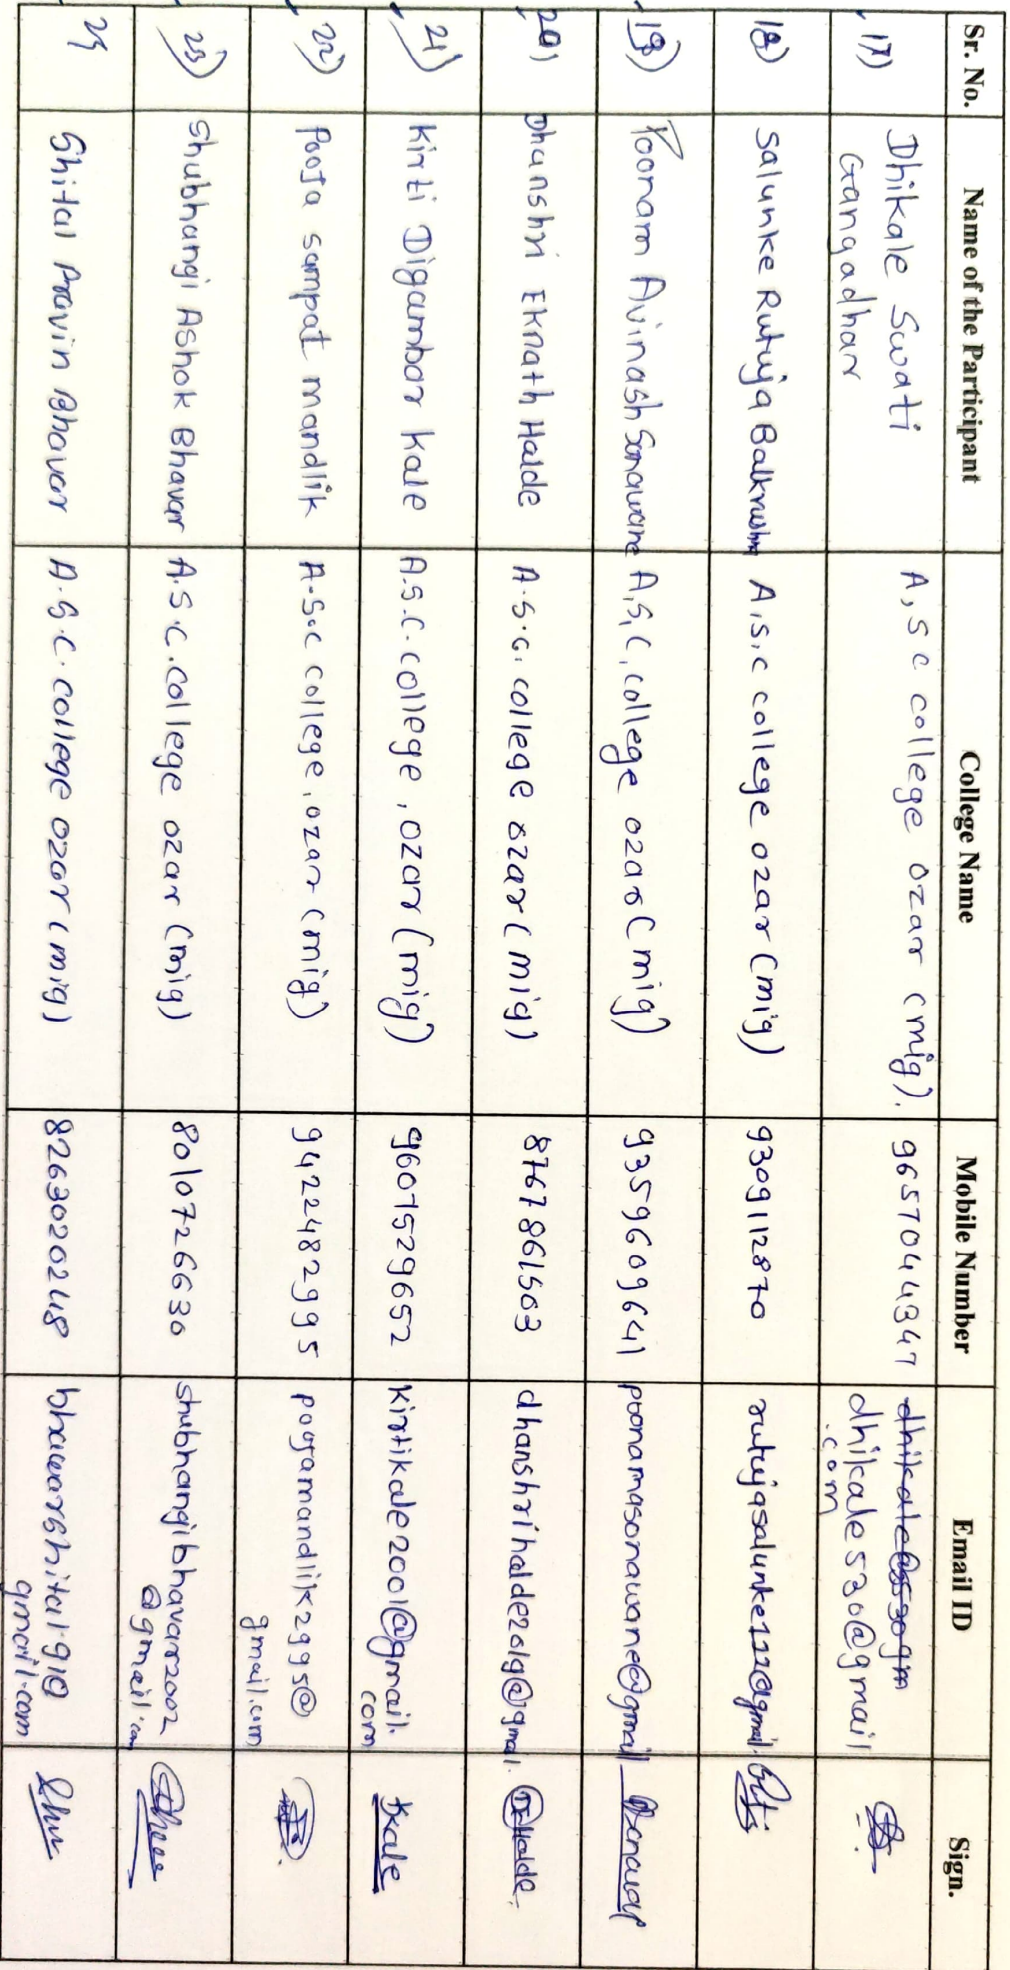 Sr. No. Name of the Participant College Name Mobile Number Email ID Sign.
17) Dhikale Swati A,sc college ozar (mig). 9657044347 dhikale
Gangadhar dhikale530@gmail
.com
18) Salunke Rutuja Balkrushna A,s,c college ozar (mig) 9309112870 rutujasalunke111@gmail.
19) Poonam Avinash Sonawane A,S,C, college ozar (mig) 9359609641 poonamasonawane@gmail
20) Dhanshri Eknath Halde A.S.C. college ozar (mig) 8767861503 dhanshrihalde2019@gmail. Halde
21) Kirti Digambar Kale A.S.C. college, ozar (mig) 9607529652 Kirtikale2001@gmail. Kale
com
22) Pooja sampat mandlik A.S.c college, ozar (mig) 9422482995 poojamandlik2995@
gmail.com
23) Shubhangi Ashok Bhavar A.S.C. college ozar (mig) 8010726630 shubhangibhavar2002
@gmail.com
24 Shital Pravin Bhavar A.S.C. college ozar (mig) 8263020248 bhawarshital91@
gmail.com